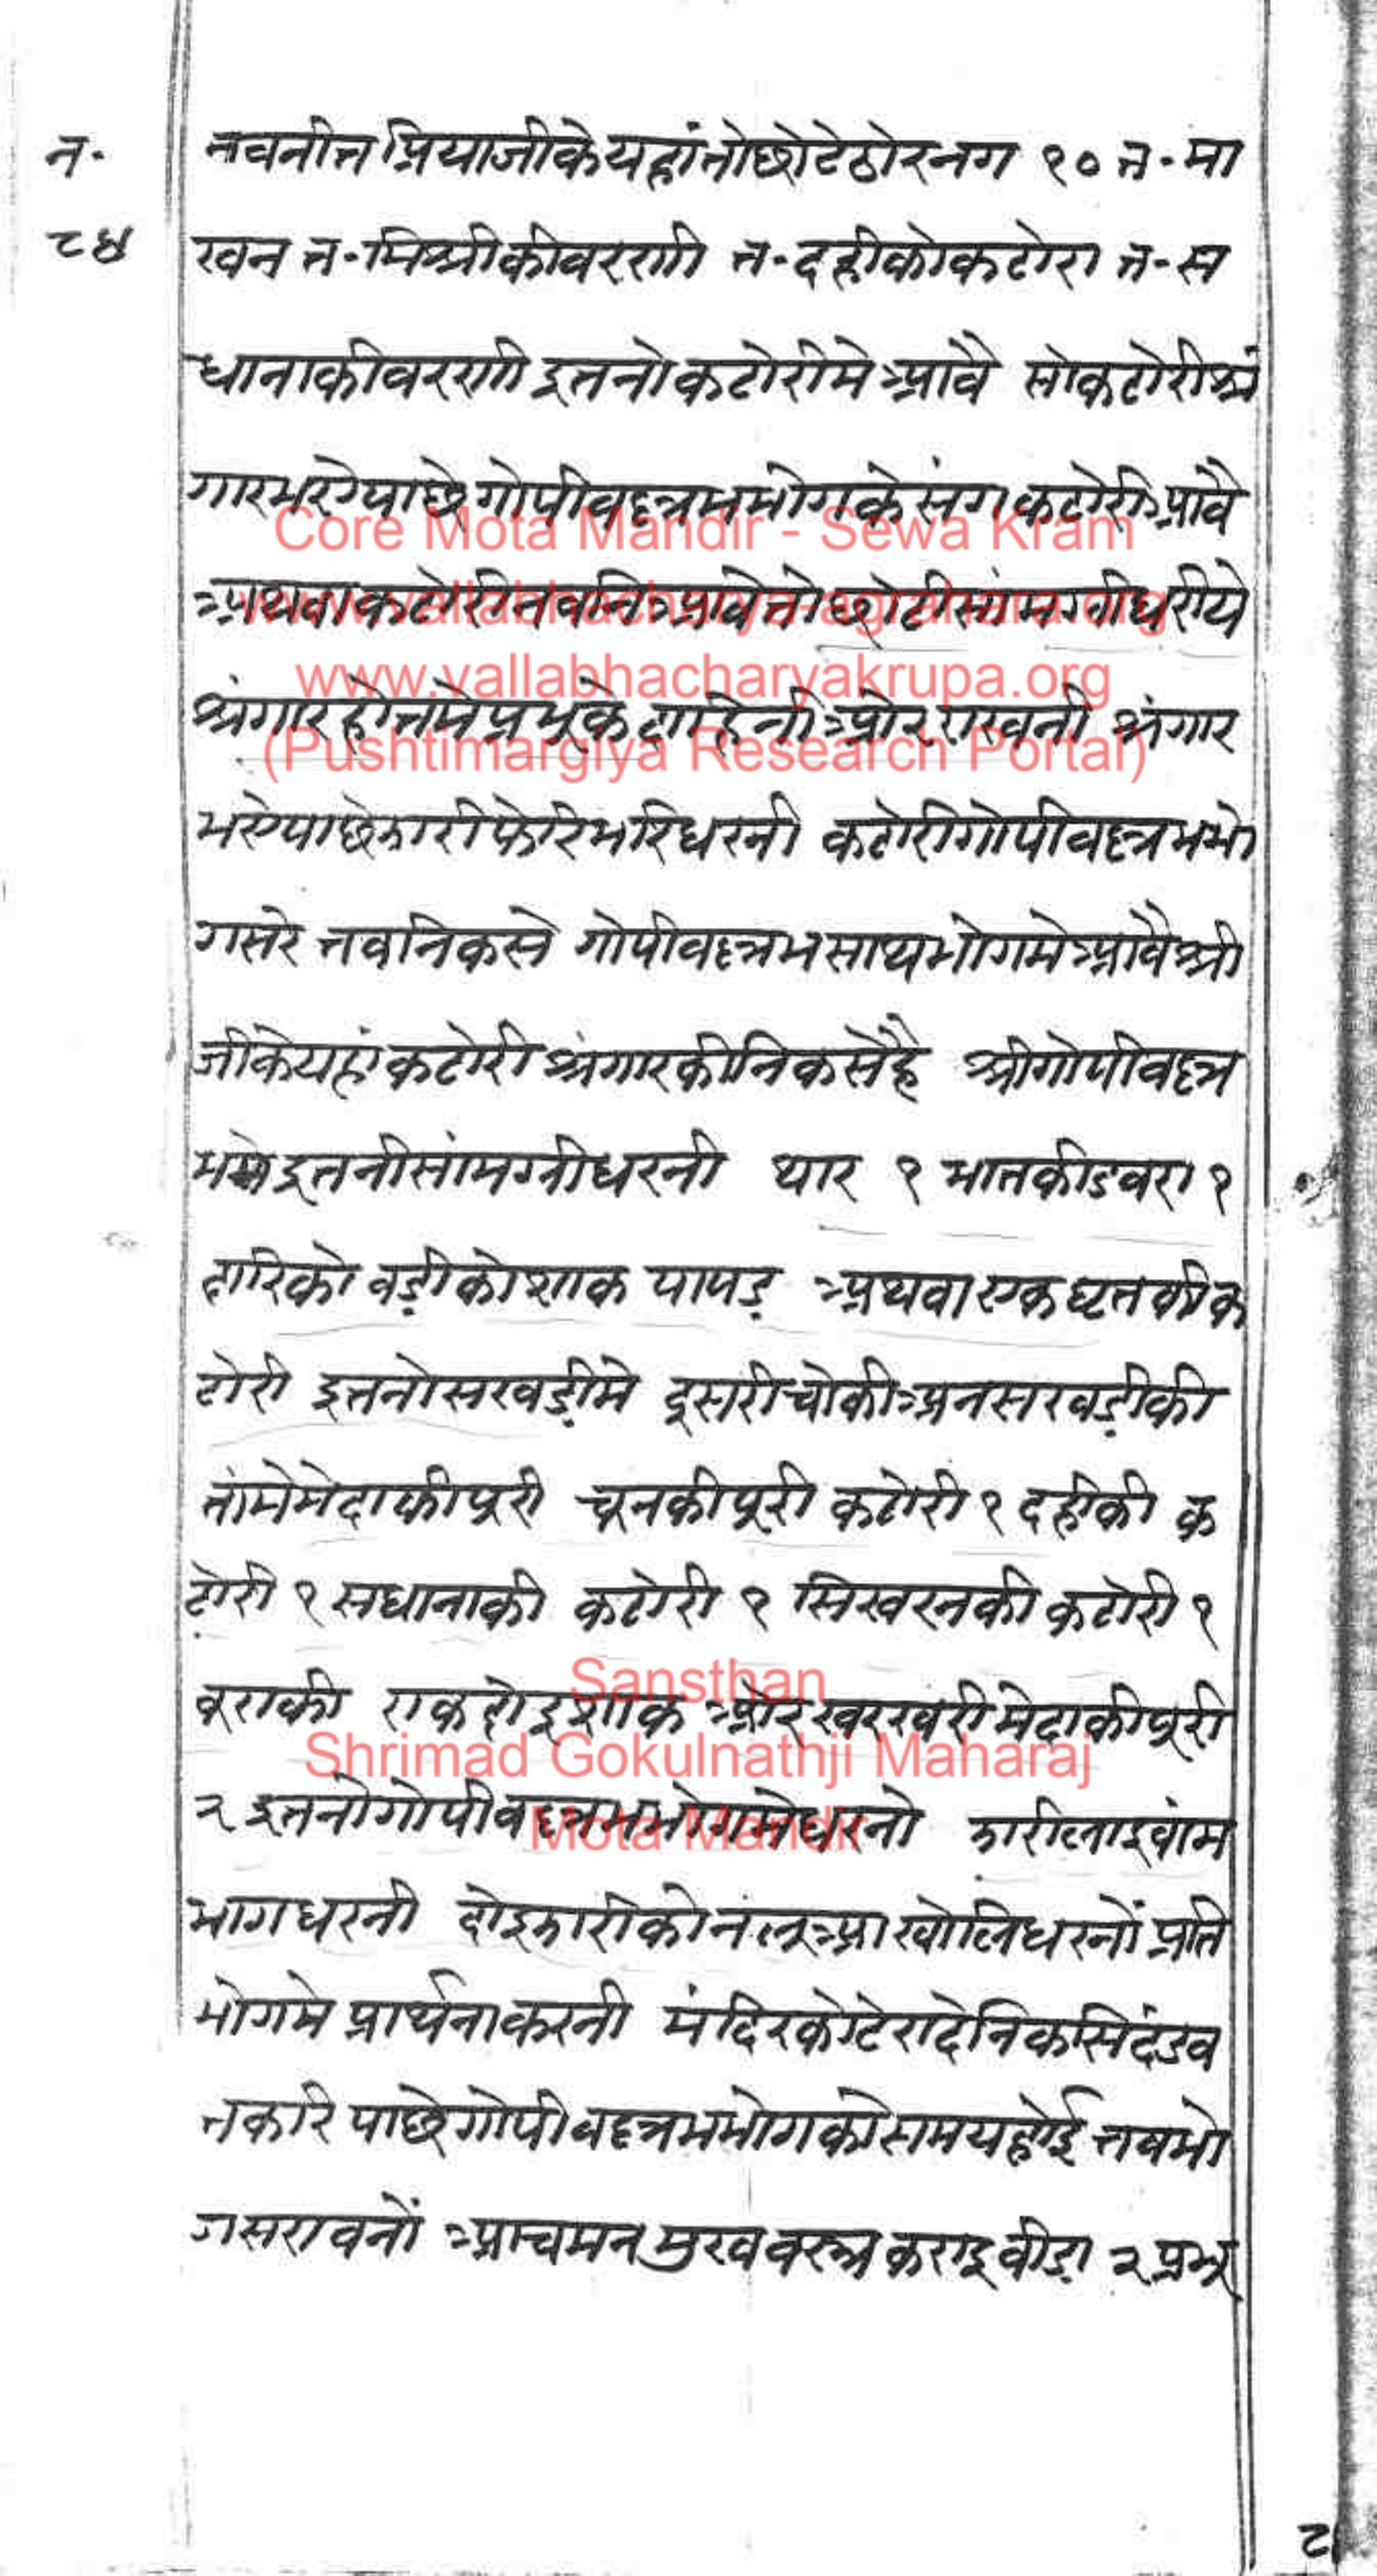 न॰
८४
नवनीत प्रियाजीके यहां तो छोटे ठोर नग १० त॰ मा
खन त॰ मिश्रीकी बरणी त॰ दहीको कटोरा त॰ स
धानाकी बरणी इतनो कटोरीमे आवै सो कटोरी श्रं
गार भए पाछे गोपीवल्लभ भोगके संग कटोरी आवै
अथवा कटोरी न बनि आवे तो छोटी सांमग्री धरीये
श्रंगार होतमे प्रभुके दाहिनी ओर राखनी श्रंगार
भए पाछे झारी फेरि भरि धरनी कटोरी गोपीवल्लभ भो
ग सरे तब निकसे गोपीवल्लभ साथ भोगमे आवै श्री
जीके यहां कटोरी श्रंगारकी निकसेहै श्री गोपीवल्ल
भमे इतनी सांमग्री धरनी थार १ भातकी डबरा १
दारिको बड़ीको शाक पापड़ अथवा एक घृतकी क
टोरी इतनो सखड़ीमे दूसरी चोकी अनसखड़ीकी
तांमे मेदाकी पूरी चूनकी पूरी कटोरी १ दहीकी क
टोरी १ सधानाकी कटोरी १ सिखरनकी कटोरी १
बूराकी एक दोइ शाक ओर खरखरी मेदाकी पूरी
२ इतनो गोपीवल्लभ भोगमे धरनो झारी लाइ वांम
भाग धरनी दोइ झारीको नलूआ खोलि धरनों प्रति
भोगमे प्रार्थना करनी मंदिरके टेरा दे निकसि दंडव
त करि पाछे गोपीवल्लभ भोगको समय होई तब भो
ग सरावनों आचमन मुखवस्त्र कराइ बीड़ा २ प्रभू
८
Core Mota Mandir - Sewa Kram
www.vallabhacharya-agrahara.org
www.vallabhacharyakrupa.org
(Pushtimargiya Research Portal)
Sansthan
Shrimad Gokulnathji Maharaj
Mota Mandir